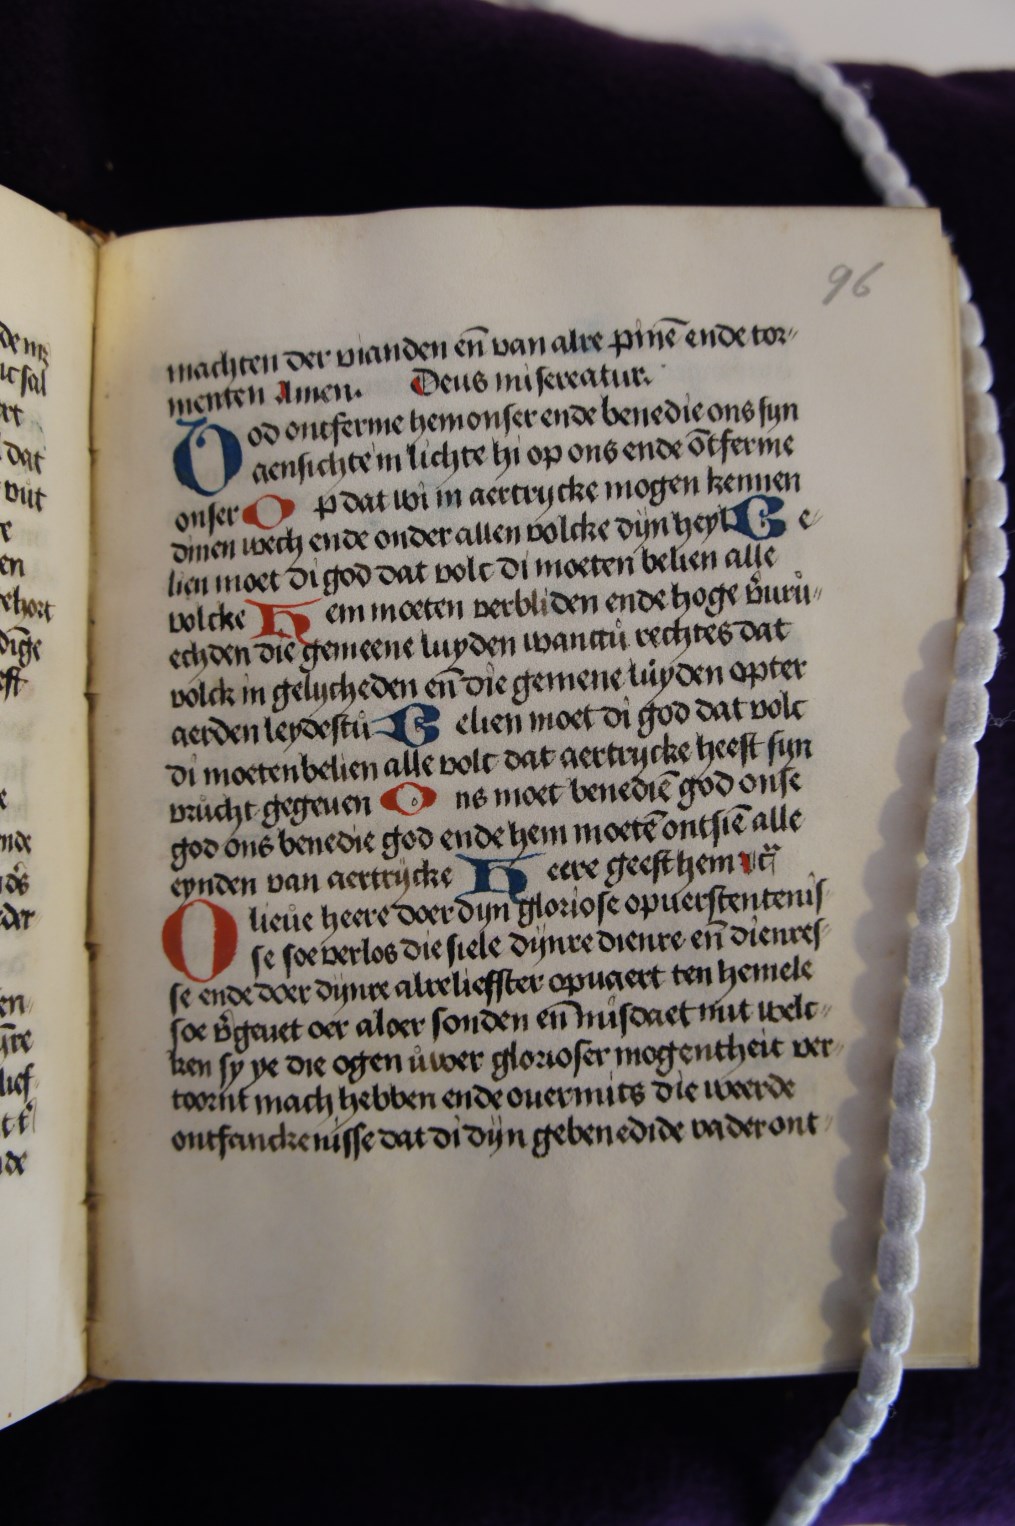 96
machten der vianden eñ van alre pinẽ ende tor-
menten Amen. Deus misereatur.
God ontferme hem onser ende benedie ons syn
aensichte in lichte hi op ons ende õtferme
onser Op dat wi in aertrycke mogen kennen
dinen wech ende onder allen volcke dijn heyl Ge-
lien moet di god dat volc di moeten belien alle
volcke Hem moeten verbliden ende hoge vuru-
echden die gemeene luyden wanttu rechtes dat
volck in gelycheden eñ die gemene luyden opter
aerden leydestu Gelien moet di god dat volc
di moeten belien alle volc dat aertrycke heeft syn
vrucht gegeuen Ons moet benediẽ god onse
god ons benedie god ende hem moetẽ ontsiẽ alle
eynden van aertrycke Heere geeft hem
O lieue heere doer dyn gloriose opuerstentenis-
se soe verlos die siele dynre dienre eñ dienres-
se ende doer dynre alreliefster opuaert ten hemele
soe vgeuet oer aloer sonden eñ misdaet mit welc-
ken sy ye die ogen uwer glorioser mogentheit ver-
toornt mach hebben ende ouermits die weerde
ontfanckenisse dat di dijn gebenedide vader ont-